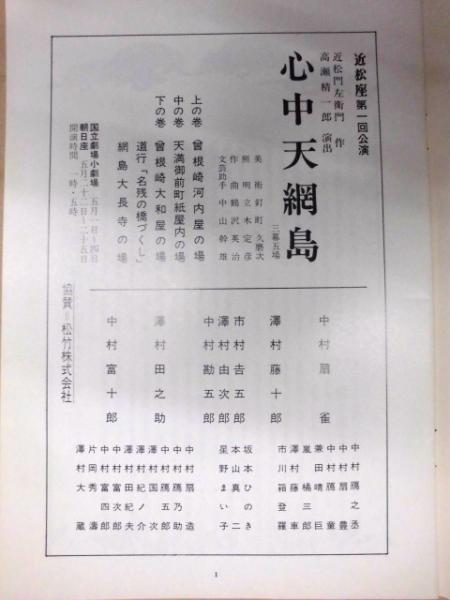 近松座第一回公演
近松門左衛門 作
高瀬精一郎 演出
心中天網島
三幕五場
美術 釘町久磨次
照明 立木定彦
作曲 鶴沢英治
文芸助手 中山幹雄
上の巻 曾根崎河内屋の場
中の巻 天満御前町紙屋内の場
下の巻 曾根崎大和屋の場
道行「名残の橋づくし」
網島大長寺の場
国立劇場小劇場 五月一日〜四日
朝日座 五月二十二日〜二十五日
開演時間 一時・五時
協賛=松竹株式会社
中村扇雀
澤村藤十郎
市村吉五郎
澤村由次郎
中村勘五郎
澤村田之助
中村富十郎
中村鴈之丞
中村扇豊
中村鴈童
兼田晴巨
嵐橘三郎
澤村藤車
市川箱登羅
坂本ひのき
本山真二
星野まい子
中村扇造
中村鴈乃助
中村鴈五郎
澤村国次
澤村紀ノ介
澤村田紀夫
中村富次郎
中村富四郎
片岡秀濤
澤村大蔵
1